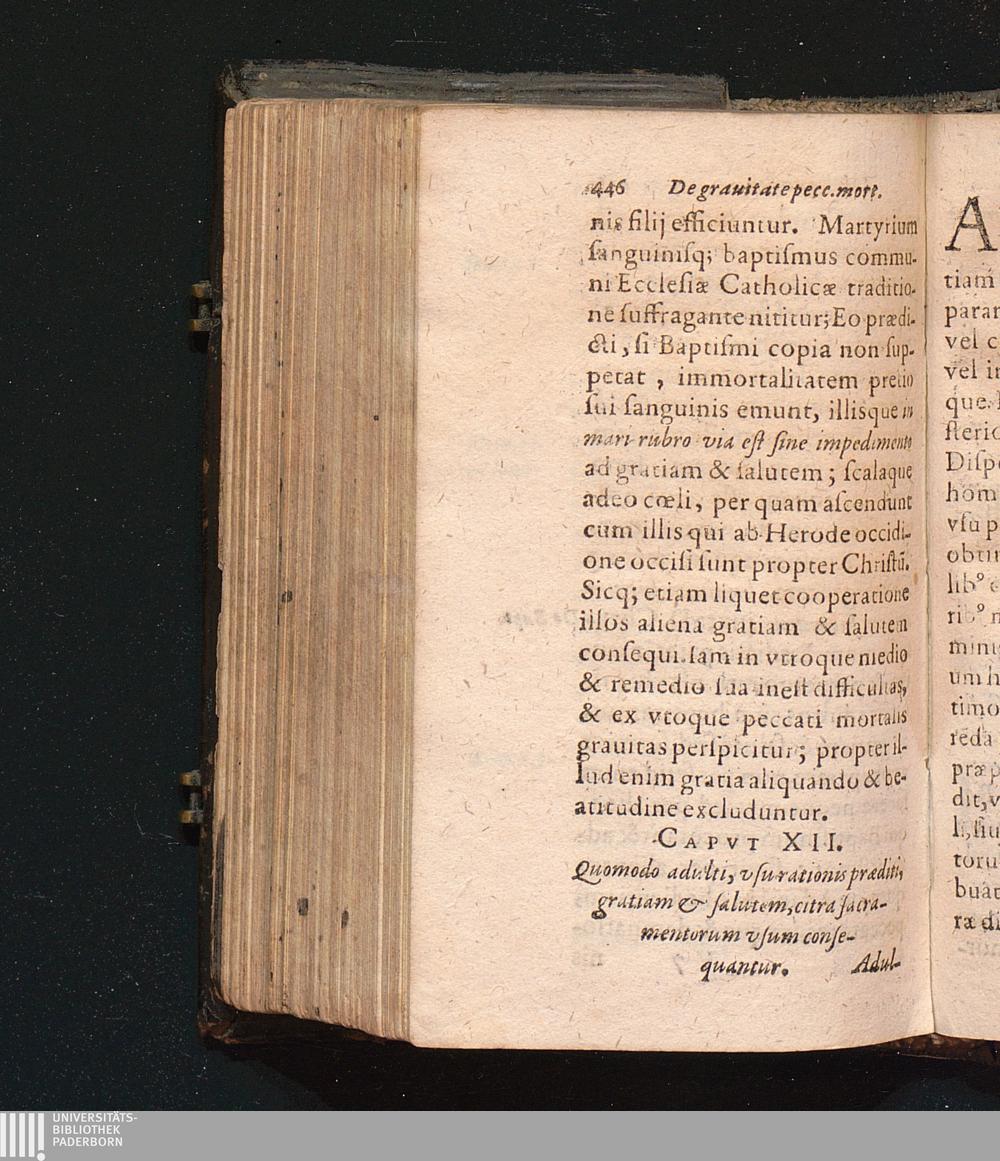 446 De grauitate pecc. mort.
nis filij efficiuntur. Martyrium
ſanguiniſq; baptiſmus commu-
ni Eccleſiæ Catholicæ traditio-
ne ſuffragante nititur; Eo prædi-
cti, ſi Baptiſmi copia non ſup-
petat, immortalitatem pretio
ſui ſanguinis emunt, illisque in
mari rubro via eſt ſine impedimento
ad gratiam & ſalutem; ſcalaque
adeo cœli, per quam aſcendunt
cum illis qui ab Herode occidi-
one occiſi ſunt propter Chriſtū.
Sicq; etiam liquet cooperatione
illos aliena gratiam & ſalutem
conſequi. Iam in vtroque medio
& remedio ſua ineſt difficultas,
& ex vtoque peccati mortalis
grauitas perſpicitur; propter il-
lud enim gratia aliquando & be-
atitudine excluduntur.
CAPVT XII.
Quomodo adulti, vſu rationis præditi,
gratiam & ſalutem, citra ſacra-
mentorum vſum conſe-
quantur. Adul-
A
tiam
parar
vel c
vel i
que.
ſterio
Diſpo
hom
vſu p
obtin
lib⁹ e
rib⁹ n
mini
um h
timo
reda
præp
dit, v
li, ſiu
toru
buat
ræ di
UNIVERSITÄTS-
BIBLIOTHEK
PADERBORN